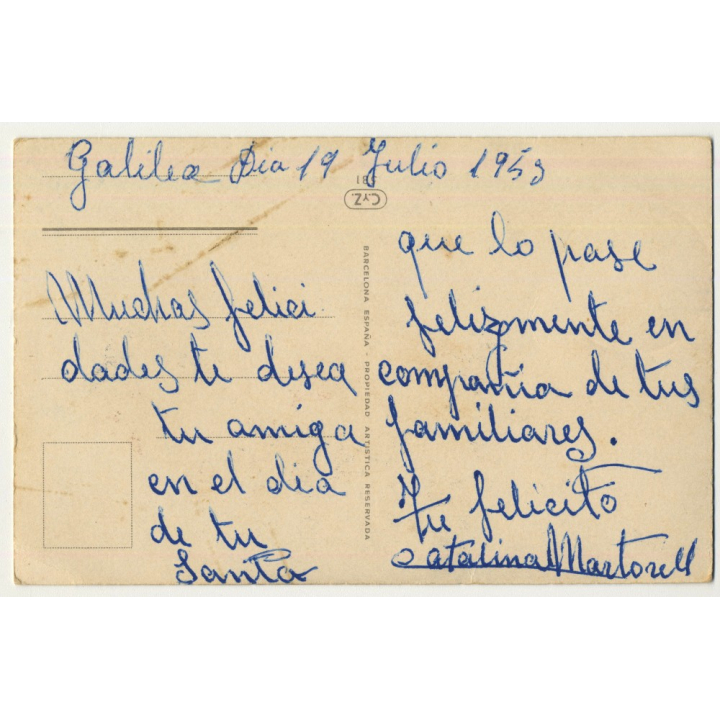 Galilea Dia 19 Julio 1953
Muchas felici
dades te desea
tu amiga
en el dia
de tu
Santa
que lo pase
felizmente en
compañia de tus
familiares.
Tu felicito
Catalina Martorell
CyZ.
BARCELONA ESPAÑA - PROPIEDAD ARTISTICA RESERVADA